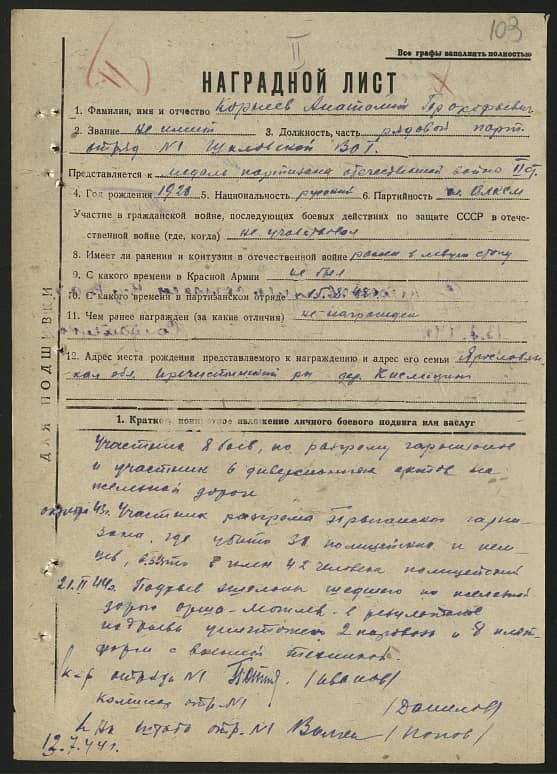 103
II
Все графы заполнять полностью
НАГРАДНОЙ ЛИСТ
1. Фамилия, имя и отчество Корнеев Анатолий Прохорьевич
2. Звание не имеет 3. Должность, часть рядовой парт
отряд №1 Шкловской ВОГ.
Представляется к медаль партизана отечественной войны II ст.
4. Год рождения 1920 5. Национальность русский 6. Партийность чл. ВЛКСМ
Участие в гражданской войне, последующих боевых действиях по защите СССР в отече-
ственной войне (где, когда) не участвовал
8. Имеет ли ранения и контузия в отечественной войне ранен в левую стопу
9. С какого времени в Красной Армии не был
10. С какого времени в партизанском отряде с 15.8.43
11. Чем ранее награжден (за какие отличия) не награжден
12. Адрес места рождения представляемого к награждению и адрес его семьи Ярославс-
кая обл. Пречистинский р-н дер.
ДЛЯ ПОДШИВКИ
1. Краткое, конкретное изложение личного боевого подвига или заслуг
Участник 8 боев, по разгрому гарнизонов
и участник в диверсионных актов на
железной дороги
октябрь 43г. Участник разгрома гарни-
зона, где убито 30 полицейских и нем-
цев, взято в плен 42 человека полицейских
21.II 44г. Подрыв эшелона шедшего по железной
дороге Орша-Могилев в результате
подрыва уничтожено 2 паровоза и 8 плат-
форм с военной техникой.
к-р отряда №1 /Иванов/
комиссар отр. №1 /Данилов/
штаба отр. №1 /Попов/
12.7.44г.